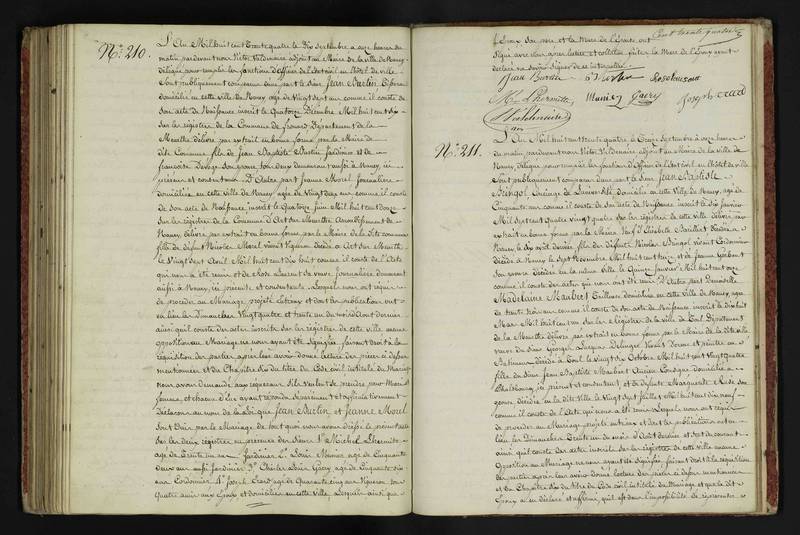 N.º 210.
L'An Mil huit cent trente quatre le Dix Septembre à onze heures du
matin pardevant nous Victor Valdenaire adjoint au Maire de la ville de Nancy
délégué pour remplir les fonctions d'officier de l'état civil en l'hôtel de ville
Sont publiquement comparus d'une part le Sieur Jean Burlin
domicilié en cette ville de Nancy âgé de Vingt sept ans comme il conste de
son acte de Naissance inscrit le Quatorze Décembre Mil huit cent six
Sur les registres de la Commune de Frouard Département de la
Meurthe délivré par extrait en bonne forme par le Maire de
dite Commune fils de Jean Baptiste Burlin Jardinier et de
françoise son épouse tous deux demeurant aussi à Nancy, ici
présents et consentants D'Autre part Jeanne Morel Journalière
domiciliée en cette ville de Nancy âgée de Vingt deux ans comme il conste
de son acte de Naissance inscrit le Quatorze Juin Mil huit cent douze
Sur les registres de la Commune d'Art sur Meurthe Arrondissement de
Nancy délivré par extrait en bonne forme par le Maire de la dite commune
fille de défunt Nicolas Morel vivant Vigneron décédé à Art sur Meurthe
le Vingt sept Avril Mil huit cent dix huit comme il conste de l'acte
qui nous a été remis et de Laurent sa veuve Journalière demeurant
aussi à Nancy, ici présente et consentante. Lesquels nous ont requis
de procéder au Mariage projeté entr'eux et dont les publications ont
eu lieu les Dimanches Vingt quatre et trente un du mois d'Août dernier
ainsi qu'il conste des actes inscrits sur les registres de cette ville aucune
opposition au Mariage ne nous ayant été signifiée, faisant droit à la
réquisition des parties après leur avoir donné lecture des pièces ci dessus
mentionnées et du Chapitre Six du titre du Code civil intitulé du Mariage
Nous avons demandé aux s'ils veulent se prendre pour Mari et
femme, et chacun d'eux ayant répondu séparément et affirmativement
Déclarons au nom de la Loi que Jean Burlin et Jeanne Morel
Sont Unis par le Mariage de tout quoi nous avons dressé le présent acte
sur les deux registres en présence des Sieurs 1.º Michel Lhermitte
âgé de trente un ans Jardinier 2.º Louis Meunier âgé de Cinquante
deux ans aussi Jardinier 3.º Charles Louis Gaéry âgé de Cinquante six
ans Cordonnier 4.º Joseph Erard âgé de Quarante cinq ans Vigneron tous
quatre amis aux Epoux et domiciliés en cette ville, Lesquels ainsi que
Cent trente quatre
l'Epoux son père et la Mère de l'Epouse ont
Signé avec nous après lecture et collation faites la Mère de l'Epoux ayant
déclaré ne savoir signer de ce interpellée.
Jean Burlin
M Lhermitte Munier Gaery Joseph Erard
Valdenaire
N.º 211.
L'An Mil huit cent trente quatre le Treize Septembre à onze heures
du matin, pardevant nous Victor Valdenaire adjoint au Maire de la ville de
Nancy délégué pour remplir les fonctions d'officier de l'état civil en l'hôtel de ville
Sont publiquement comparus d'une part le Sieur Jean Baptiste
Bingol, Concierge de l'université, domicilié en cette ville de Nancy, âgé de
Cinquante ans comme il conste de son acte de Naissance inscrit le six Janvier
Mil sept cent Quatre vingt quatre sur les registres de cette ville délivré par
extrait en bonne forme par le Maire, Veuf d'Elisabeth décédée à
Nancy, le dix août dernier, fils des défunts Nicolas Bingol vivant Cordonnier
décédé à Nancy le sept Décembre Mil huit cent treize et de Jeanne
son épouse décédée en la même ville le Quinze Janvier Mil huit cent onze
comme il conste des actes qui nous ont été remis D'Autre part Demoiselle
Madelaine Maubert Tailleuse domiciliée en cette ville de Nancy, âgée
de trente trois ans comme il conste de son acte de Naissance inscrit le dix huit
Mars Mil huit cent un sur les registres de la ville de Toul Département
de la Meurthe délivré, par extrait en bonne forme par le Maire de la dite ville
veuve du Sieur Georges Jacques vivant et peintre en
Bâtimens décédé à Toul le Vingt six Octobre Mil huit cent vingt quatre
fille du Sieur Jean Baptiste Maubert Ancien domicilié à
Phalsbourg, ici présent et consentant et de défunte Marguerite son
épouse décédée en la dite ville le Vingt sept Juillet Mil huit cent dix neuf
comme il conste de l'acte qui nous a été remis Lesquels nous ont requis
de procéder au Mariage projeté entr'eux et dont les publications ont eu
lieu les Dimanches Trente un du mois d'Août dernier et sept du courant
ainsi qu'il conste des actes inscrits sur les registres de cette ville aucune
Opposition au Mariage ne nous ayant été signifiée, faisant droit à la réquisition
des parties après leur avoir donné lecture des pièces ci dessus mentionnées
et du Chapitre Six du titre du Code civil intitulé du Mariage et que le dit
Epoux a eu déclaré et affirmé, qu'il est dans l'impossibilité de représenter